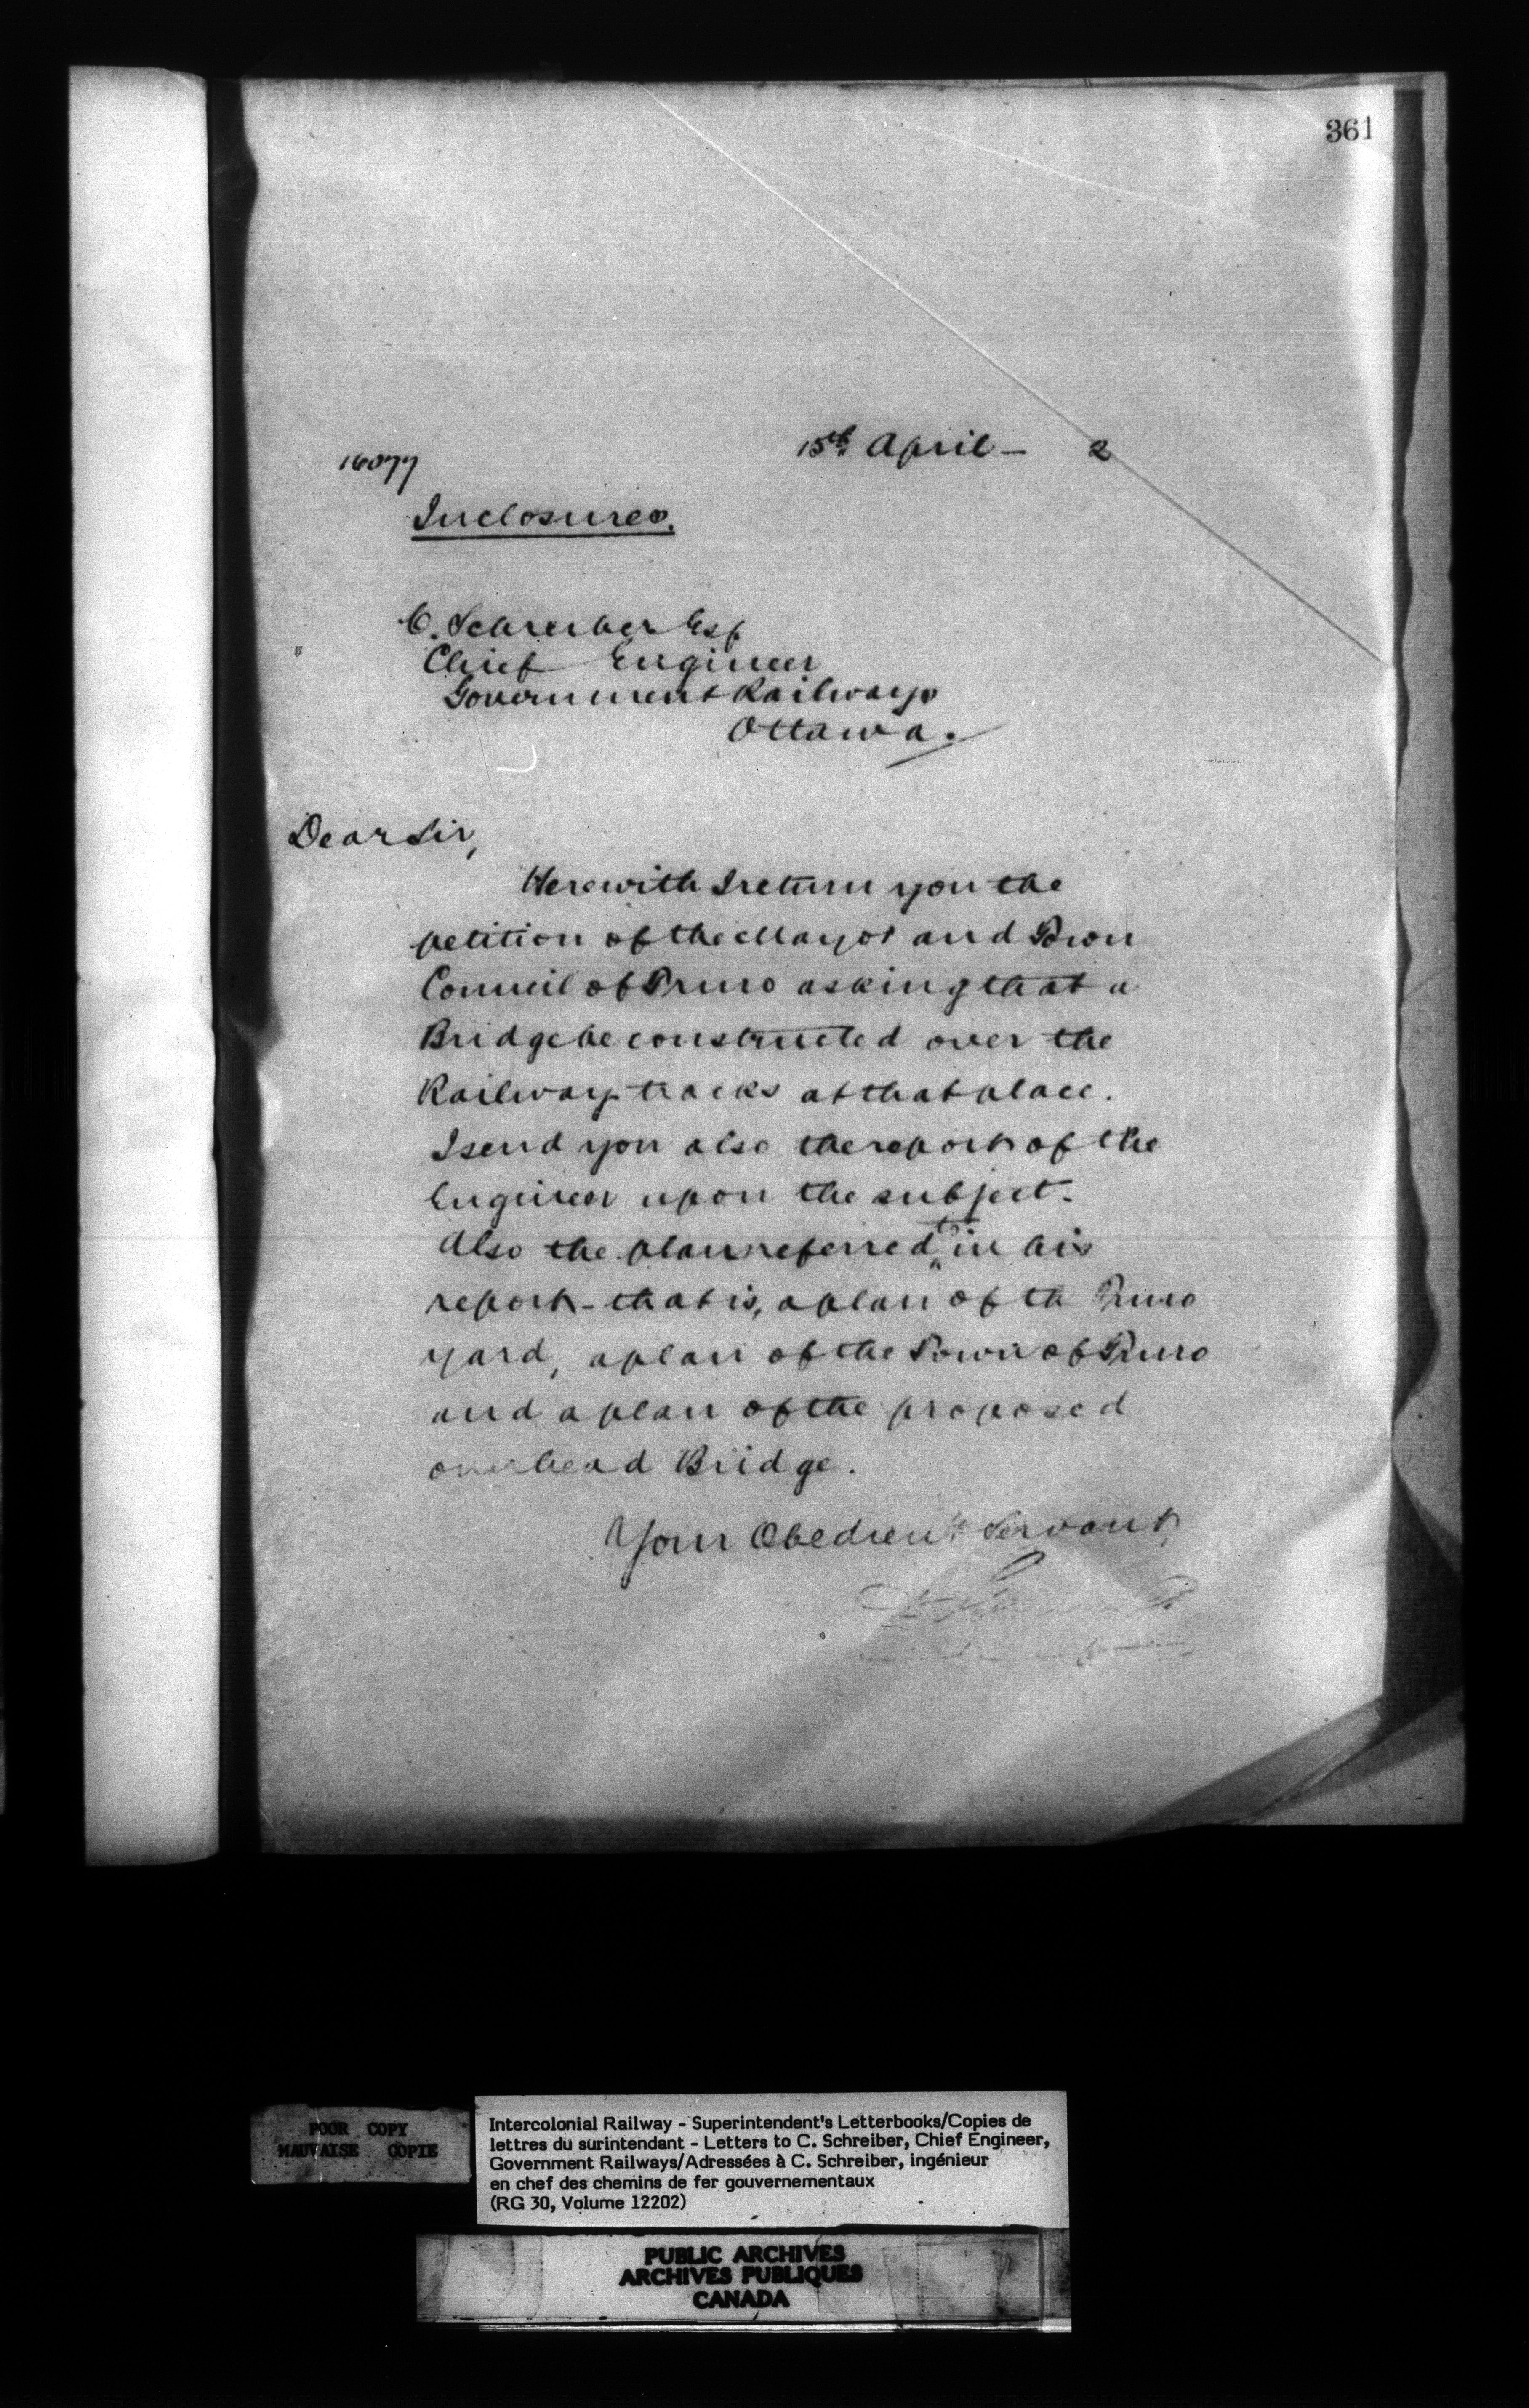 361
15th April - 2
16077
Inclosures.
C. Schreiber Esq
Chief Engineer
Government Railways
Ottawa.
Dear Sir,
Herewith I return you the
petition of the Mayor and Town
Council of Truro asking that a
Bridge be constructed over the
Railway tracks at that place.
I send you also the report of the
Engineer upon the subject.
Also the plan referred to in his
report - that is, a plan of th Truro
yard, a plan of the Town of Truro
and a plan of the proposed
overhead Bridge.
Your Obedient Servant,
POOR COPY
MAUVAISE COPIE
Intercolonial Railway - Superintendent's Letterbooks/Copies de
lettres du surintendant - Letters to C. Schreiber, Chief Engineer,
Government Railways/Adressées à C. Schreiber, ingénieur
en chef des chemins de fer gouvernementaux
(RG 30, Volume 12202)
PUBLIC ARCHIVES
ARCHIVES PUBLIQUES
CANADA